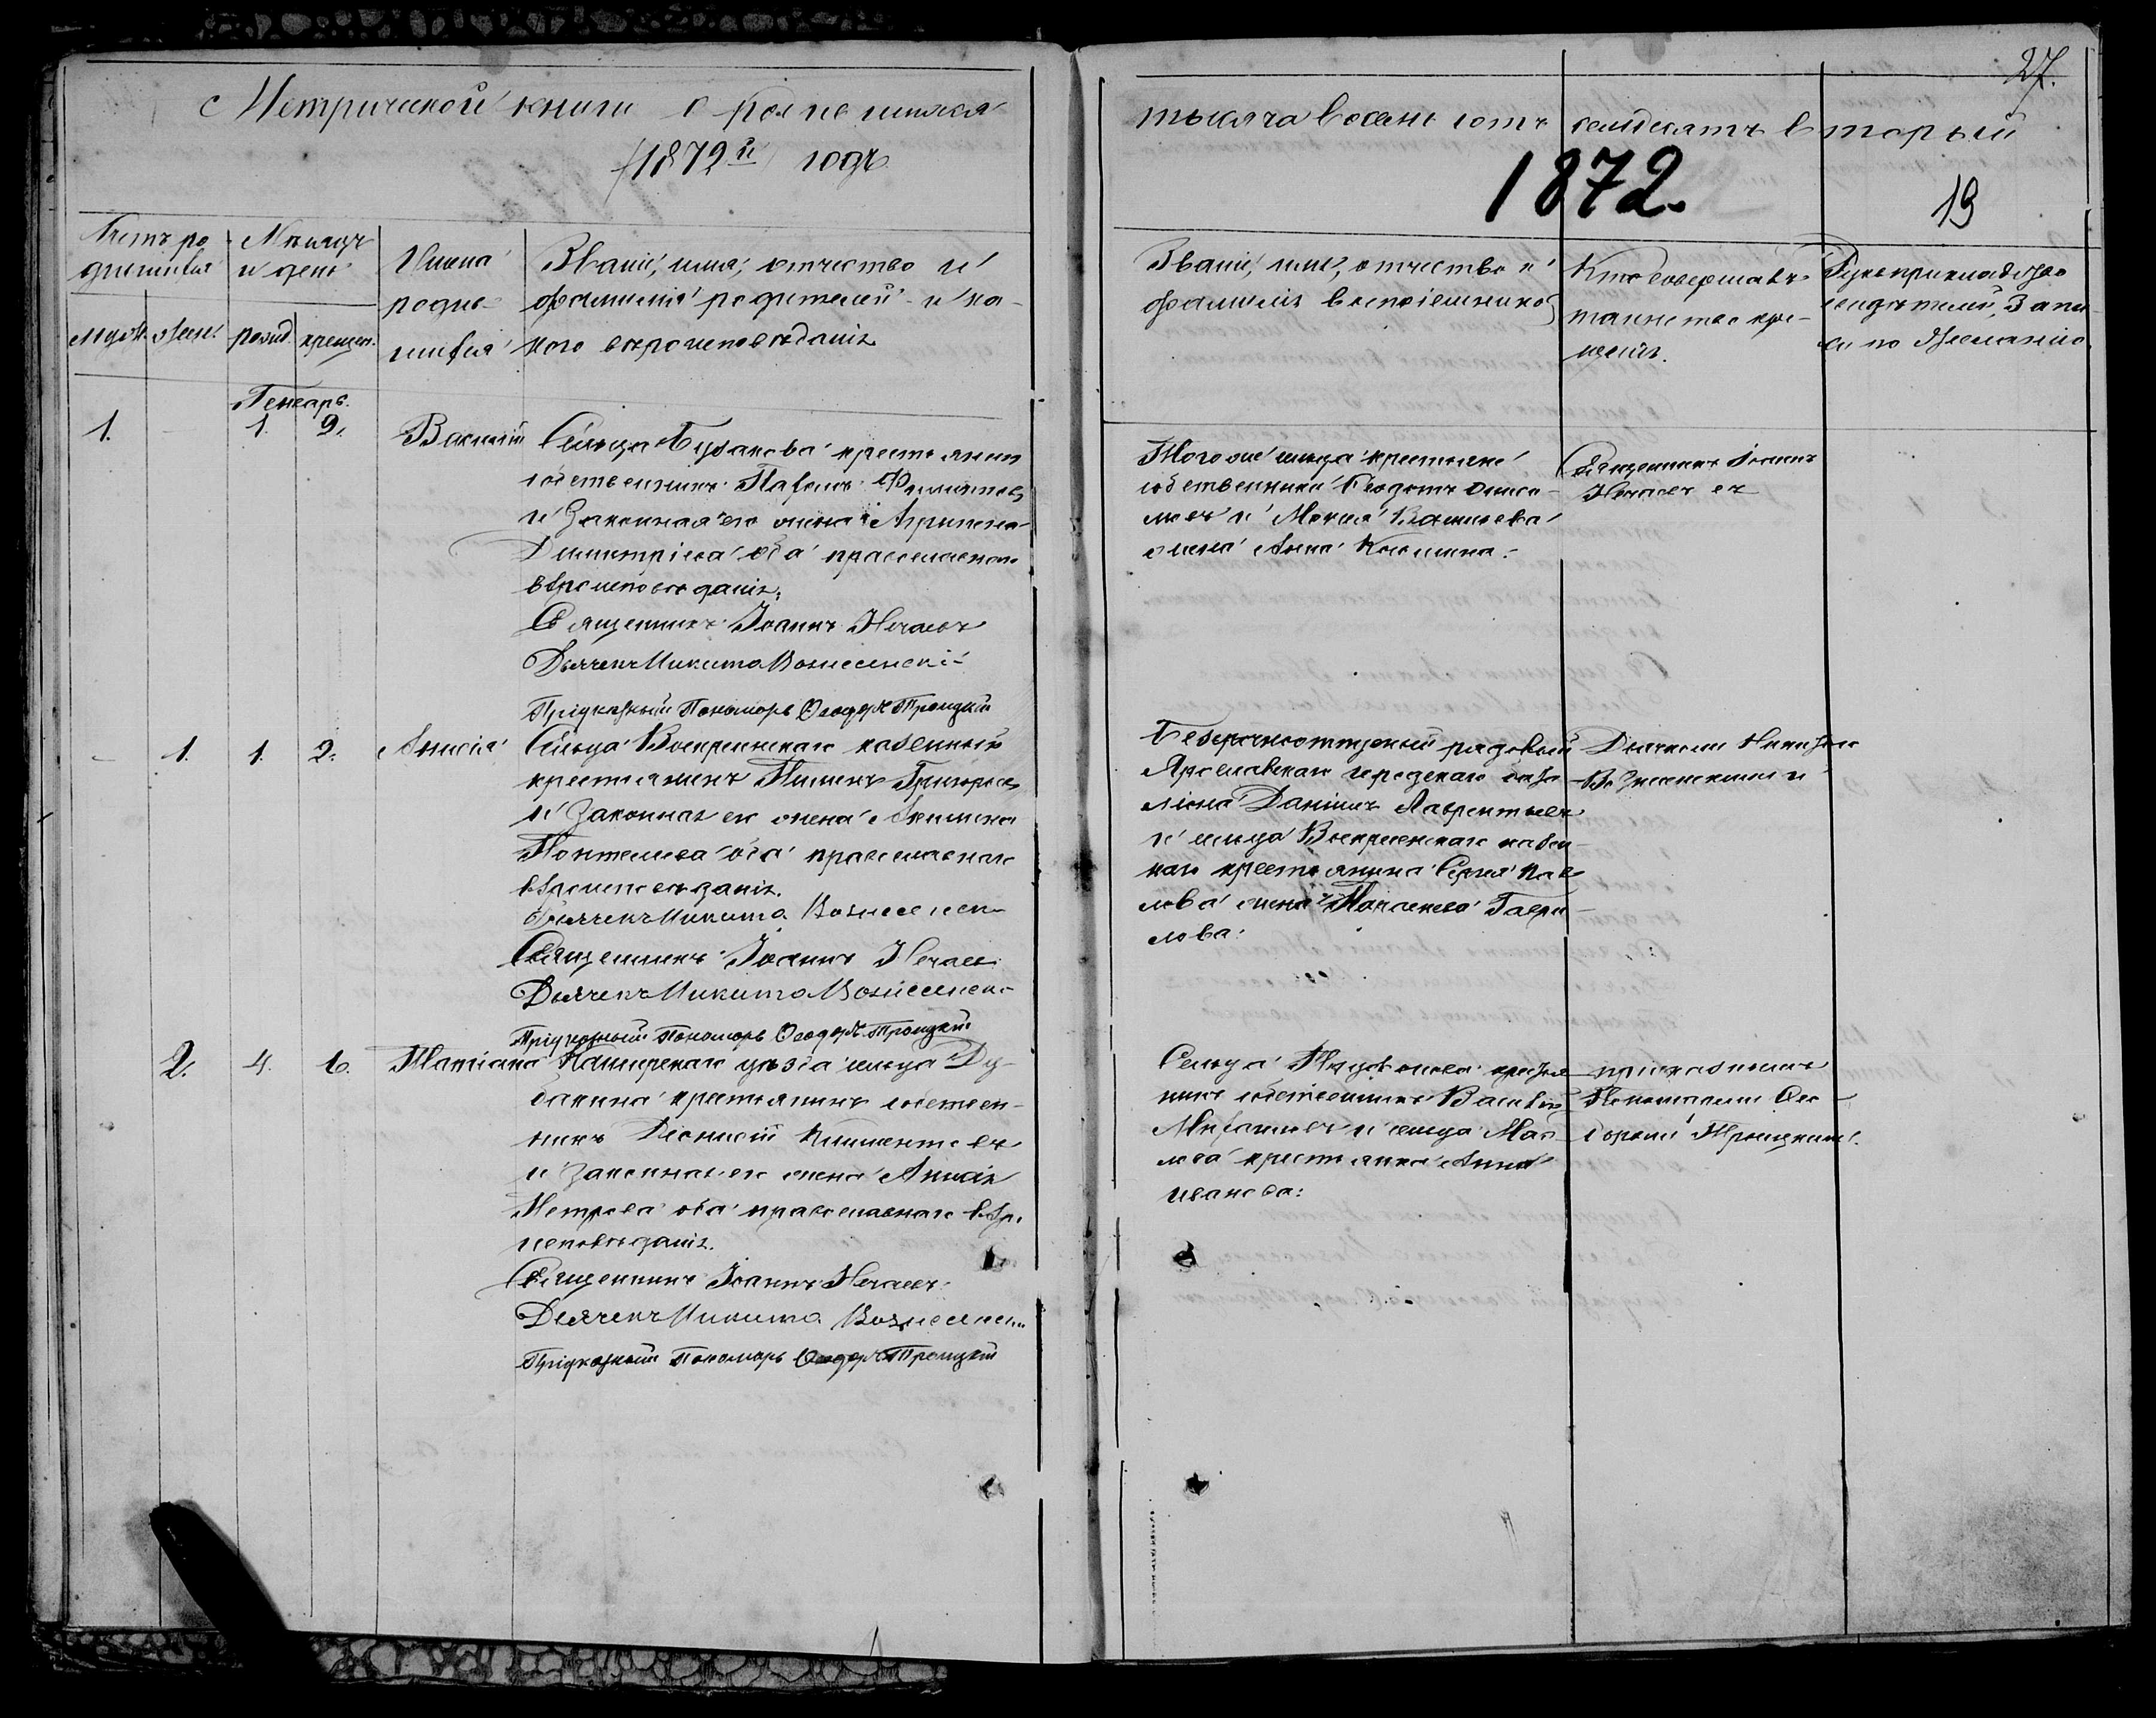 Метрической книги о родившихся
1872й годъ
Счетъ ро-
дившихся
Мѣсяцъ
и день
Имена
родив-
шихся
Званіе, имя, отчество и
фамилія родителей и ка-
кого вѣроисповѣданія
мужск. женс.
рожд. крещен.
Генварь.
1. 1. 2. Василій
Сельца Бузакова крестьянинъ
собственникъ Павелъ Филиповъ
и законная его жена Агрипена
Димитріева оба православнаго
вѣроисповѣданія.
Священникъ Іоаннъ Нечаевъ
Дьячекъ Никита Вознесенскі
Приуказный Пономарь Ѳеодоръ Троицкій
1. 1. 2. Анисія
Сельца Воскресенскаго казенный
крестьянинъ Пименъ Григорьевъ
и законная его жена Акилина
Понтелева оба православнаго
вѣроисповѣданія.
Дьячекъ Никита Вознесенск
Священникъ Іоаннъ Нечаев
Дьячекъ Никита Вознесенск
Приуказный Пономарь Ѳеодоръ Троицкій
2. 4. 6. Татіана
Каширскаго уѣзда сельца Ду-
бакина крестьянинъ собствен-
никъ Діонисій Климентовъ
и законная его жена Анисія
Петрова оба православнаго вѣро
исповѣданія.
Священникъ Іоаннъ Нечаевъ
Дьячекъ Никита Вознесенск
Приуказный Пономарь Ѳеодоръ Троицкій
27.
тысяча восемь сотъ семдесятъ вторый
1872.
19
Званіе, имя, отчество и
фамилія воспріемниковъ
Кто совершалъ
таинство кре-
щенія.
Рукоприкладство
свидѣтелей запи-
си по желанію
Того же сельца крестьяне
собственника Ѳеодотъ
и Василева
жена Анна Козмина.
Священникъ Іоаннъ
Нечаевъ
Безсрочноотпускный рядовый
Ярославскаго городскаго бата
ліона Даніилъ Лаврентьевъ
и сельца Воскресенскаго казен
наго крестьянина Сергія Пав
лова жена Гаври
лова.
Дьячкомъ Никитою
Вознесенскимъ
Сельца крестья
нинъ собственникъ Василій
и сельца Мас
лова крестьянка Анна
Иванова:
приуказнымъ
Пономаремъ Ѳео
доромъ Троицкимъ.